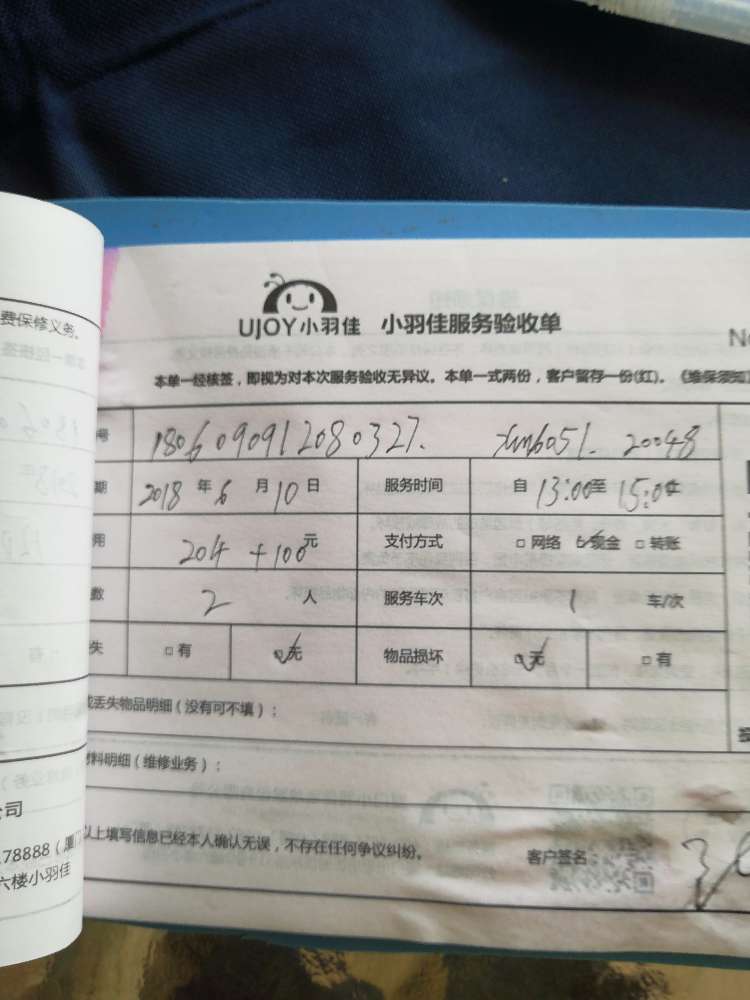 费保修义务。
UJOY小羽佳 小羽佳服务验收单
本单一经核签，即视为对本次服务验收无异议。本单一式两份，客户留存一份(红)。《维保须知
号 1806090912080327. xm6051. 20048
期 2018 年 6 月 10 日 服务时间 自 13:00 至 15:00 止
用 204 +100 元 支付方式 □ 网络 ☑现金 □ 转账
数 2 人 服务车次 1 车/次
失 □ 有 ☑无 物品损坏 ☑无 □ 有
或丢失物品明细（没有可不填）：
材料明细（维修业务）：
以上填写信息已经本人确认无误，不存在任何争议纠纷。 客户签名
公司
78888（厦门
六楼小羽佳